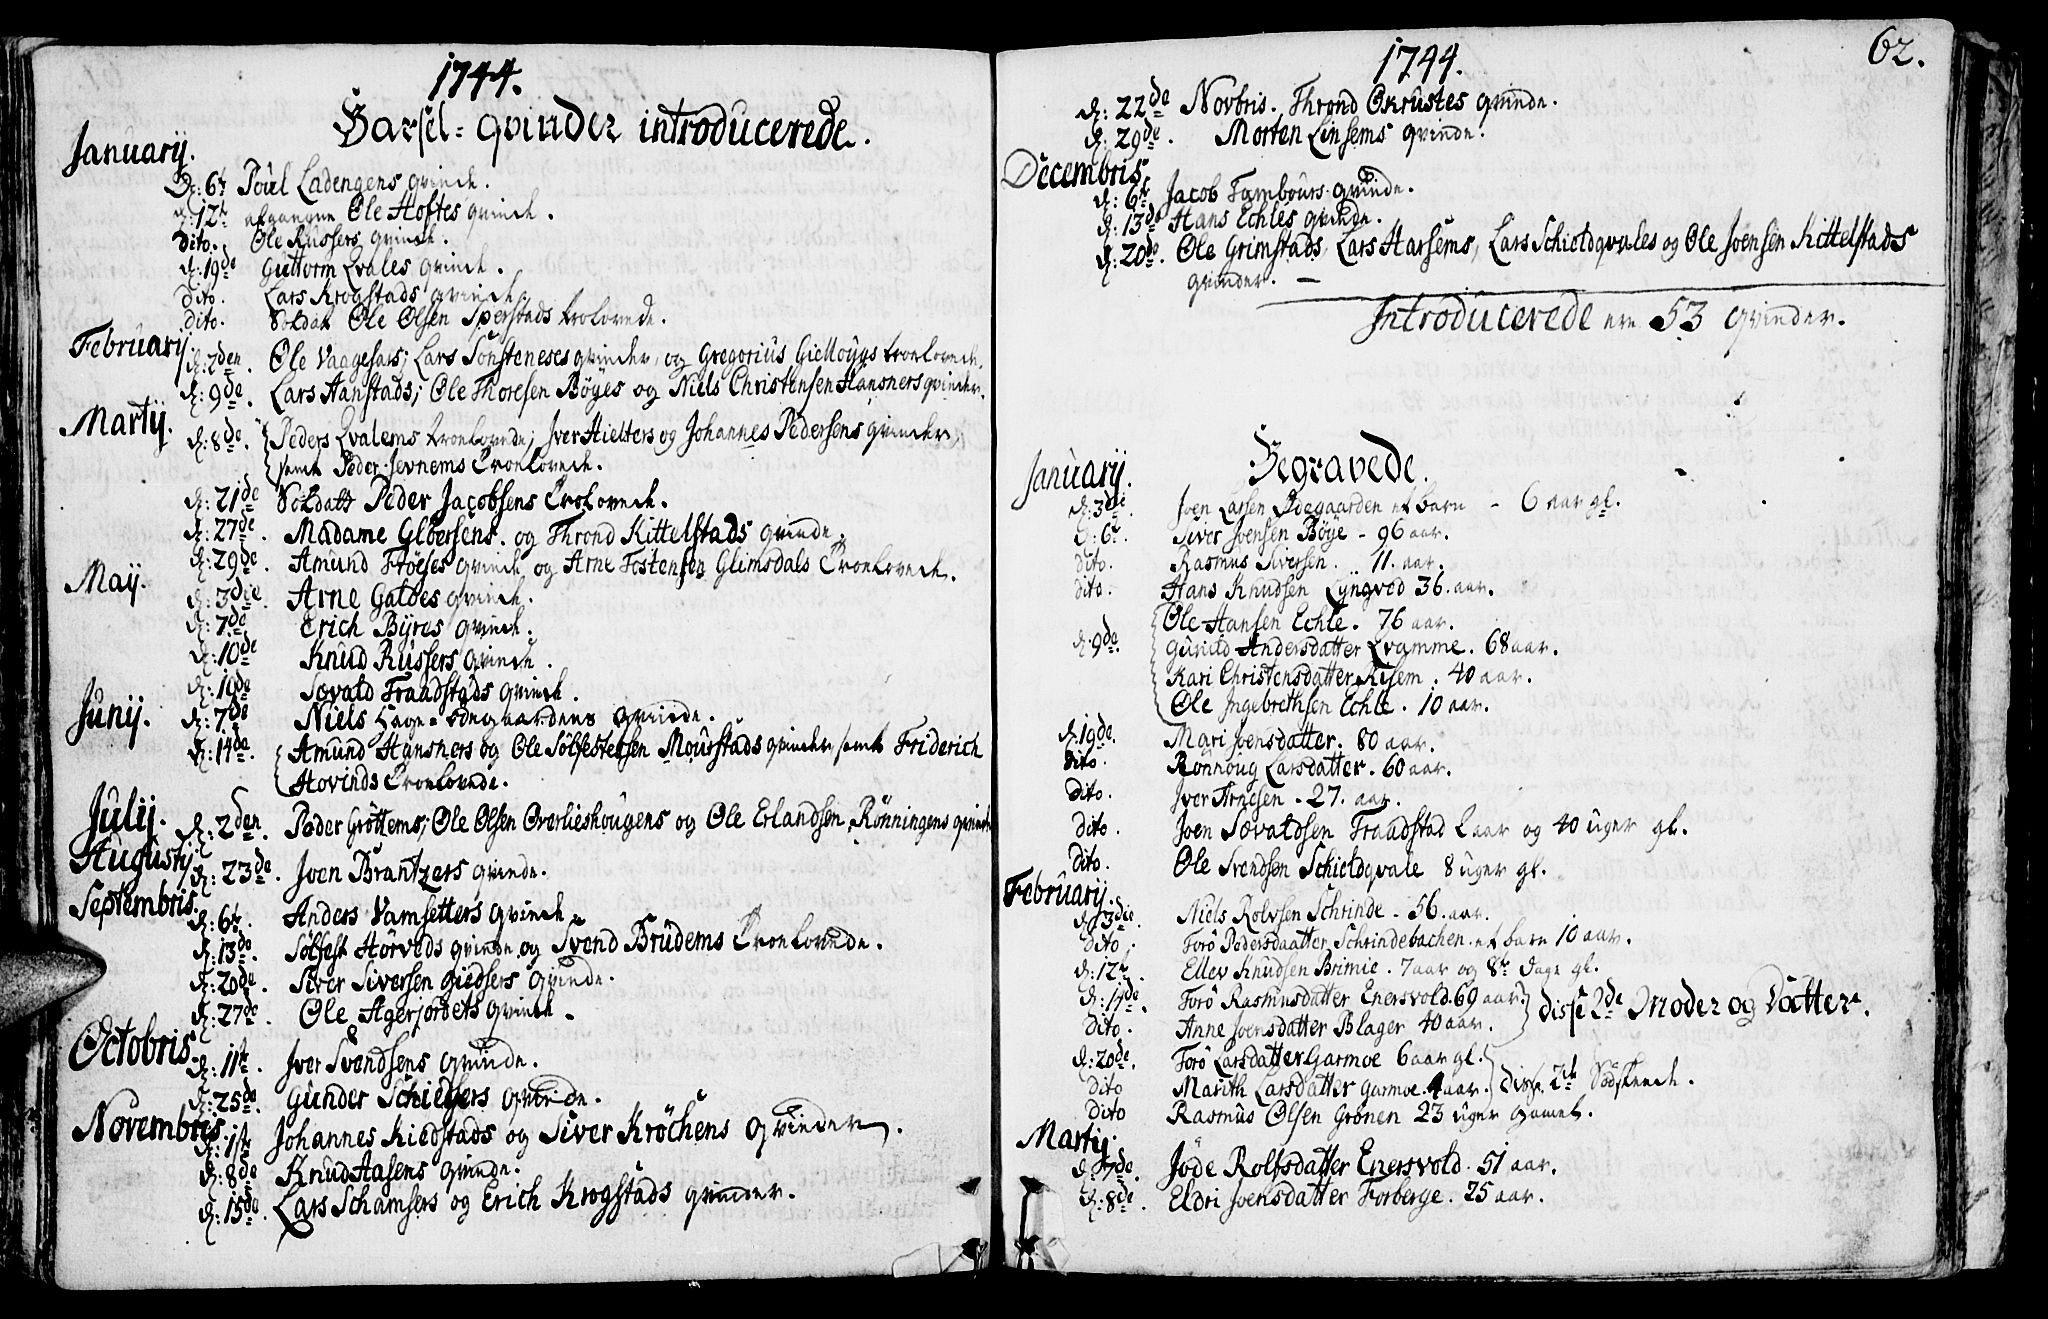 1744.
Barsel=qvinder introducerede.
Januarij.
D: 6te Poul Ladengens qvinde.
d: 12te afgangne Ole Hoftes qvinde.
dito. Ole Russers qvinde.
d: 19de Guttorm Qvales qvinde.
dito. Lars Krogstads qvinde.
dito. Soldat Ole Olsen Sperstads trolovede.
Februarij.
d: 2den. Ole Vaagesars; Lars Sonsteneses qvinder, og Gregorius Gielloÿgs troelovede.
d: 9de. Lars Hanstads; Ole Thoresen Böyes og Niels Christensen Hansners qvinder.
Martij.
d: 8de. Peders Qvalems troelovede; Iver Hielters og Johannes Pedersens qvinder,
samt Peder Jevnems Troelovede.
d: 21de Soldatt Peder Jacobsens Trolovede.
d: 27de. Madame Glöersens. og Thrond Kittelstads qvinde.
d: 29de. Amund Fröeses qvinde og Arne Fostensen Glimsdals Troelovede.
Maij.
d: 3die. Arne Galdes qvinde.
d: 7de Erich Bÿres qvinde.
d: 10de Knud Russers qvinde.
d: 19de Sævald Fraadstads qvinde.
Junij.
d: 7de Niels Hage=ödegaardens qvinde.
d: 14de. Amund Hansners og Ole Sölfestersen Mourstads qvinder, samt Friderich
Hovinds Troelovede.
Julij.
d: 2den. Peder Gröttems; Ole Olsen Överlieshougens og Ole Erlandsen Rönningens qvinder
Augustij.
d: 23de. Joen Brantzers qvinde.
Septembris.
d: 6te. Anders Vamsetters qvinde.
d: 13de. Sölfest Hörveds qvinde og Svend Brudems Troelovede.
d: 20de. Siver Siversen Giedsers qvinde.
d: 27de. Ole Agerjordets qvinde.
Octobris.
d: 11te. Iver Svendsens qvinde.
d: 25de. Gunder Schiegers qvinde.
Novembris.
d: 1ste Johannes Kiedstads og Siver Kröchens qvinder.
d: 8de Knud Hasens qvinde.
d: 15de. Lars Schamsers og Erich Krogstads qvinder.
1744.
62.
d: 22de Novbris. Thrond Okrustes qvinde.
d: 29de. Morten Linsems qvinde.
Decembris.
d: 6te. Jacob Tambours qvinde.
d: 13de Hans Echles qvinde.
d: 20de. Ole Grimstads, Lars Harsems, Lars Schioldqvales og Ole Joensen Kittelstads
qvinder. —
Introducerede ere 53 qvinder.
Begravede.
Januarij.
d: 3die. Joen Larsen Ödegaarden et barn - 6 aar gl.
d: 6te. Siver Joensen Böye - 96 aar.
dito. Rasmus Siversen. 11. aar.
dito. Hans Knudsen Lyngved 36. aar.
Ole Hansen Echle. 76 aar.
d: 9de. Gunild Andersdatter Qvamme. 68 aar.
Kari Christensdatter Risem. 40 aar.
Ole Ingebrethsen Echle. 10 aar.
d: 19de. Mari Joensdatter. 80 aar.
dito. Rönnoug Larsdatter. 60 aar.
dito. Iver Arnesen - 27. aar.
dito. Joen Sævaldsen Fraadstad 2 aar og 40 uger gl.
dito. Ole Svendsen Schieldqvale 8 uger gl.
Februarij.
d: 3die. Niels Rolvsen Schrinde - 56. aar.
dito. Torö Pedersdaatter Schrindebachen. et barn 10 aar.
d: 12te. Ellev Knudsen Brimie. 7 aar og 8te dage gl.
d: 17de. Torö Rasmusdatter Enersvold. 69 aar. disse 2de Moder og Datter.
dito. Anne Joensdatter Blager 40 aar.
d: 20de. Torö Larsdatter Garmoe 6 aar gl. disse 2de Södskende.
dito Marith Larsdatter Garmoe. 4 aar.
dito Rasmus Olsen Grönen 23 uger gamel.
Martij.
d: 7de. Jöde Rolfsdatter Enersvold. 51 aar.
d: 8de. Eldri Joensdatter Forberge. 25 aar.